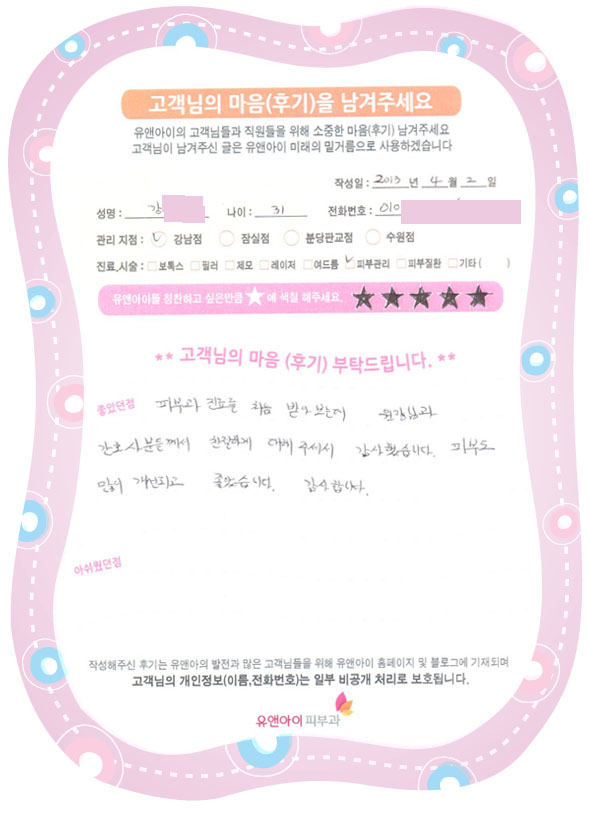 고객님의 마음(후기)을 남겨주세요
유앤아이의 고객님들과 직원들을 위해 소중한 마음(후기) 남겨주세요
고객님이 남겨주신 글은 유앤아이 미래의 밑거름으로 사용하겠습니다
작성일 : 2013 년 4 월 2 일
성명 : 강 나이 : 31 전화번호 : 010
관리 지점 : 강남점 잠실점 분당판교점 수원점
진료,시술 : 보톡스 필러 제모 레이저 여드름 피부관리 피부질환 기타 ( )
유앤아이를 칭찬하고 싶은만큼 ★에 색칠 해주세요. ★★★★★
** 고객님의 마음 (후기) 부탁드립니다. **
좋았던점 피부과 진료를 처음 받아보는데 원장님과
간호사분들께서 친절하게 대해 주셔서 감사했습니다. 피부도
많이 개선되고 좋았습니다. 감사합니다.
아쉬웠던점
작성해주신 후기는 유앤아의 발전과 많은 고객님들을 위해 유앤아이 홈페이지 및 블로그에 기재되며
고객님의 개인정보(이름,전화번호)는 일부 비공개 처리로 보호됩니다.
유앤아이 피부과